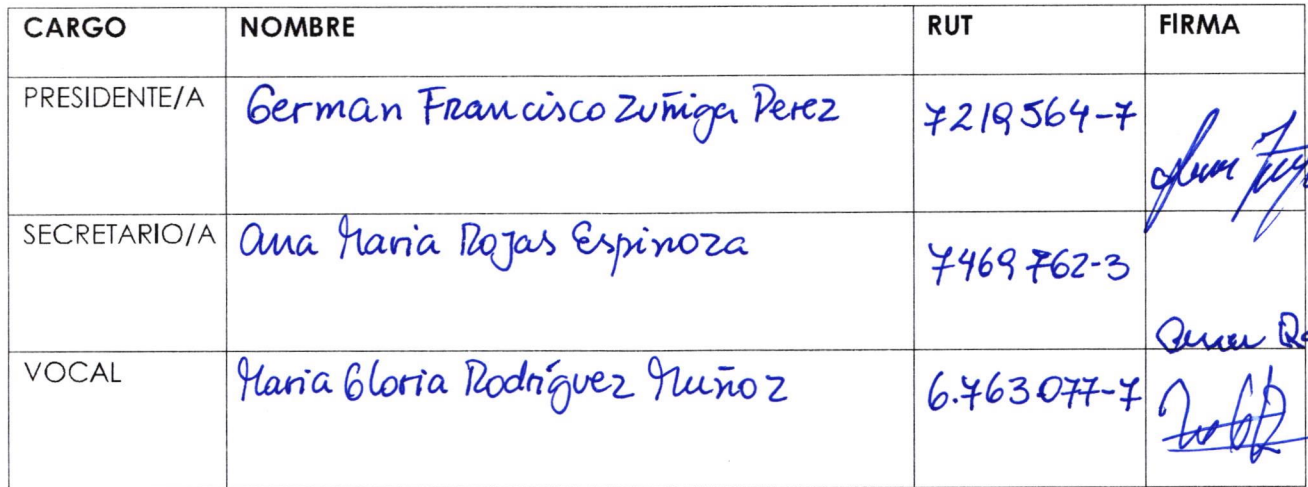 CARGO NOMBRE RUT FIRMA
PRESIDENTE/A German Francisco Zuñiga Perez 7219564-7
SECRETARIO/A Ana Maria Rojas Espinoza 7469762-3
VOCAL Maria Gloria Rodríguez Muñoz 6.763.077-7